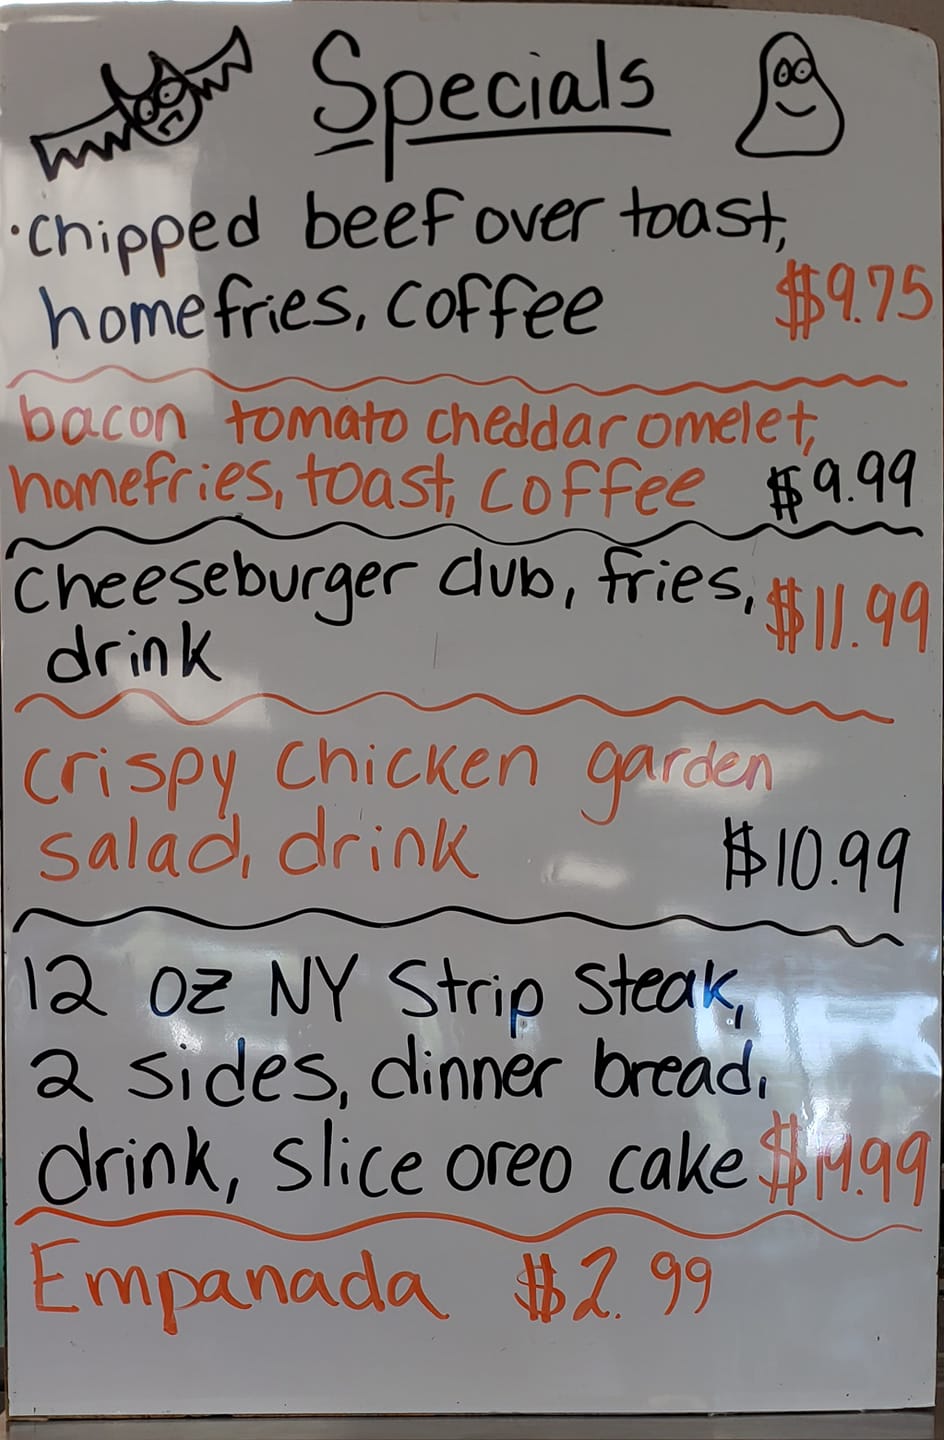 Specials
·chipped beef over toast,
homefries, coffee $9.75
bacon tomato cheddar omelet,
homefries, toast, coffee $9.99
cheeseburger club, fries, $11.99
drink
crispy chicken garden
salad, drink $10.99
12 oz NY Strip Steak,
2 sides, dinner bread,
drink, slice oreo cake $19.99
Empanada $2.99